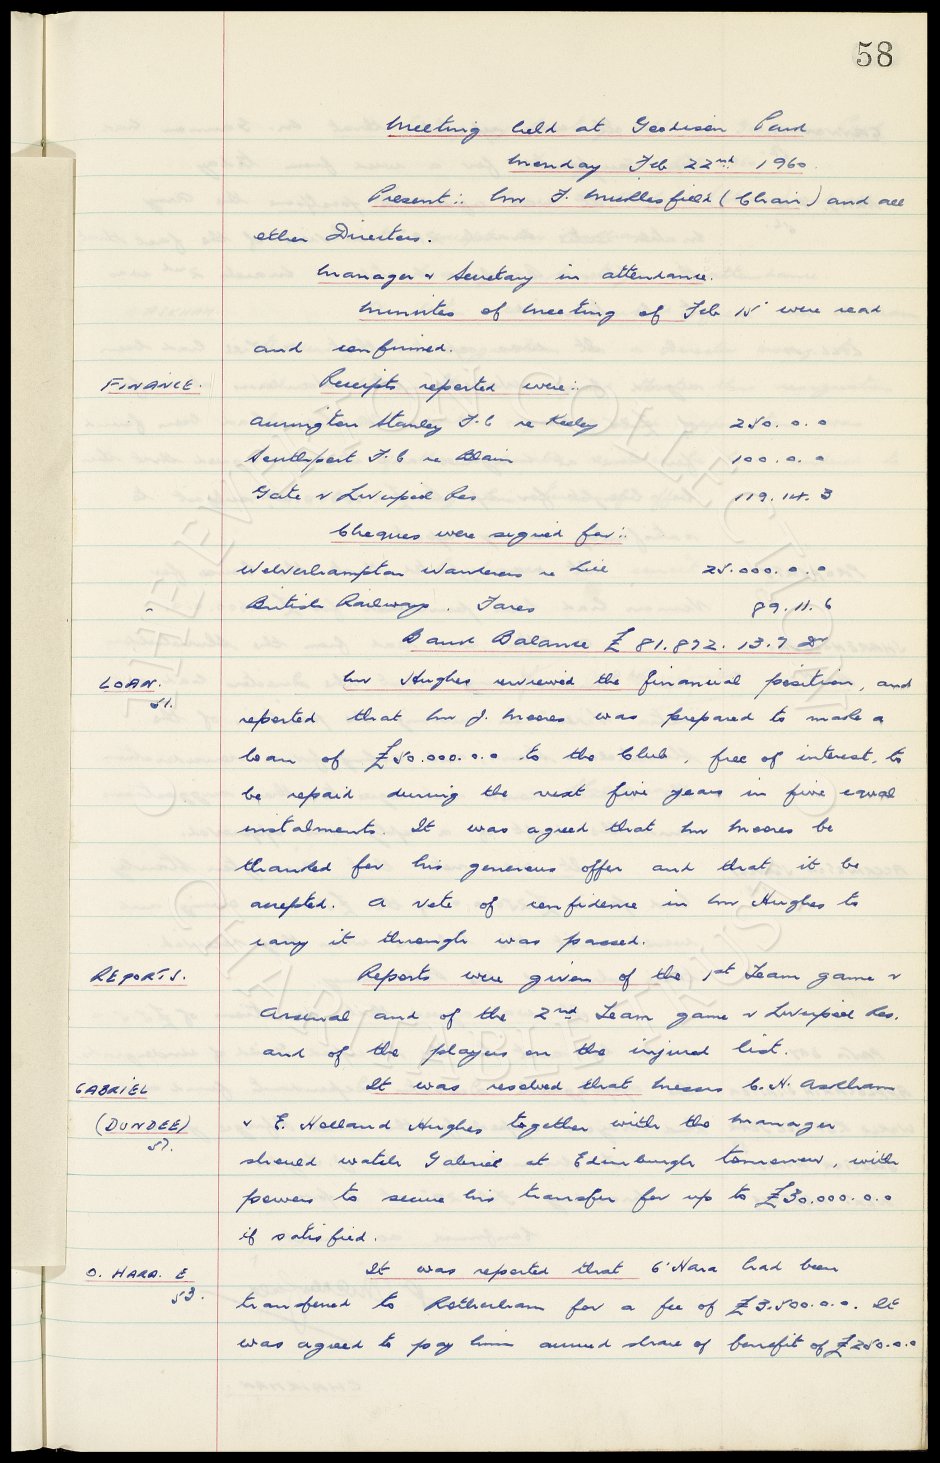 58
Meeting held at Goodison Park
Monday Feb 22nd 1960.
Present:: Mr F. Micklesfield (Chair) and all
other Directors.
Manager & Secretary in attendance.
Minutes of meeting of Feb 15 were read
and confirmed.
FINANCE. Receipts reported were::
Accrington Stanley F.C re Keeley 250.0.0
Southport F.C re Blain 100.0.0
Gate v Liverpool Res 119.14.3
Cheques were signed for::
Wolverhampton Wanderers re Lill 25.000.0.0
British Railways. Fares 89.11.6
Bank Balance £81.872.13.7 Dr
LOAN. Mr Hughes reviewed the financial position, and
51.
reported that Mr J. Moores was prepared to make a
loan of £50.000.0.0 to the Club, free of interest, to
be repaid during the next five years in five equal
instalments. It was agreed that Mr Moores be
thanked for his generous offer and that it be
accepted. A Vote of confidence in Mr Hughes to
carry it through was passed.
REPORTS. Reports were given of the 1st Team game v
Arsenal and of the 2nd Team game v Liverpool Res.
and of the players on the injured list.
GABRIEL It was resolved that Messrs C.H. Askham
(DUNDEE) & E. Holland Hughes together with the Manager
57.
should watch Gabriel at Edinburgh tomorrow, with
powers to secure his transfer for up to £30.000.0.0
if satisfied.
O. HARA. E It was reported that O'Hara had been
53.
transferred to Rotherham for a fee of £3.500.0.0. It
was agreed to pay him accrued share of benefit of £250.0.0
EVERTON COLLECTION
CHARITABLE TRUST